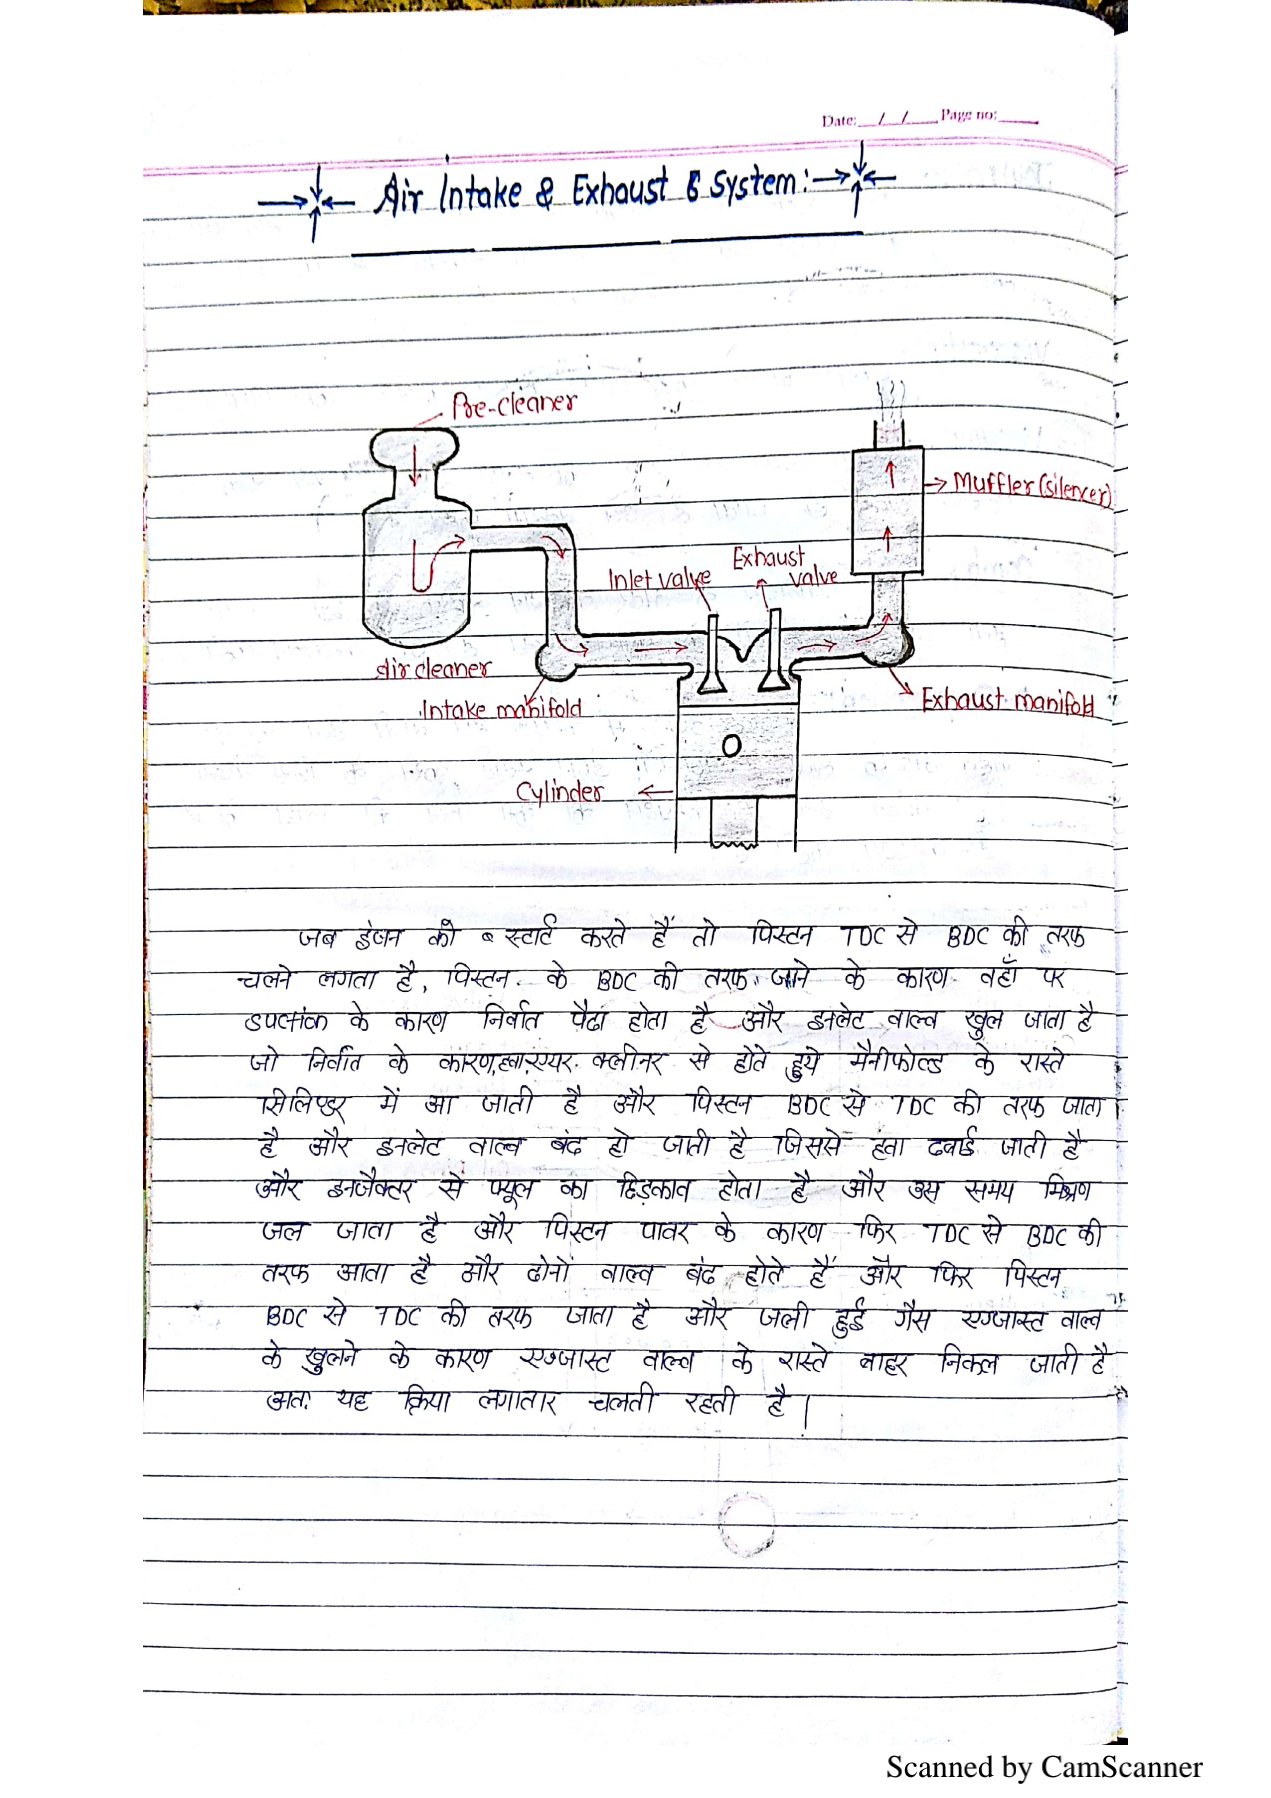 Date: __/__/____ Page no: ____
Air Intake & Exhaust System:
Pre-cleaner
Muffler (silencer)
Exhaust
Inlet valve
valve
Air cleaner
Intake manifold
Exhaust manifold
Cylinder
जब इंजन को स्टार्ट करते हैं तो पिस्टन TDC से BDC की तरफ
चलने लगता है, पिस्टन के BDC की तरफ जाने के कारण वहाँ पर
suction के कारण निर्वात पैदा होता है और इनलेट वाल्व खुल जाता है
जो निर्वात के कारण, हवा, एयर क्लीनर से होते हुये मैनीफोल्ड के रास्ते
सिलिण्डर में आ जाती है और पिस्टन BDC से TDC की तरफ जाता
है और इनलेट वाल्व बंद हो जाती है जिससे हवा दबाई जाती है
और इनजैक्टर से फ्यूल का छिड़काव होता है और उस समय मिश्रण
जल जाता है और पिस्टन पावर के कारण फिर TDC से BDC की
तरफ आता है और दोनों वाल्व बंद होते हैं और फिर पिस्टन
BDC से TDC की तरफ जाता है और जली हुई गैस एग्जास्ट वाल्व
के खुलने के कारण एग्जास्ट वाल्व के रास्ते बाहर निकल जाती है
अतः यह क्रिया लगातार चलती रहती है।
Scanned by CamScanner